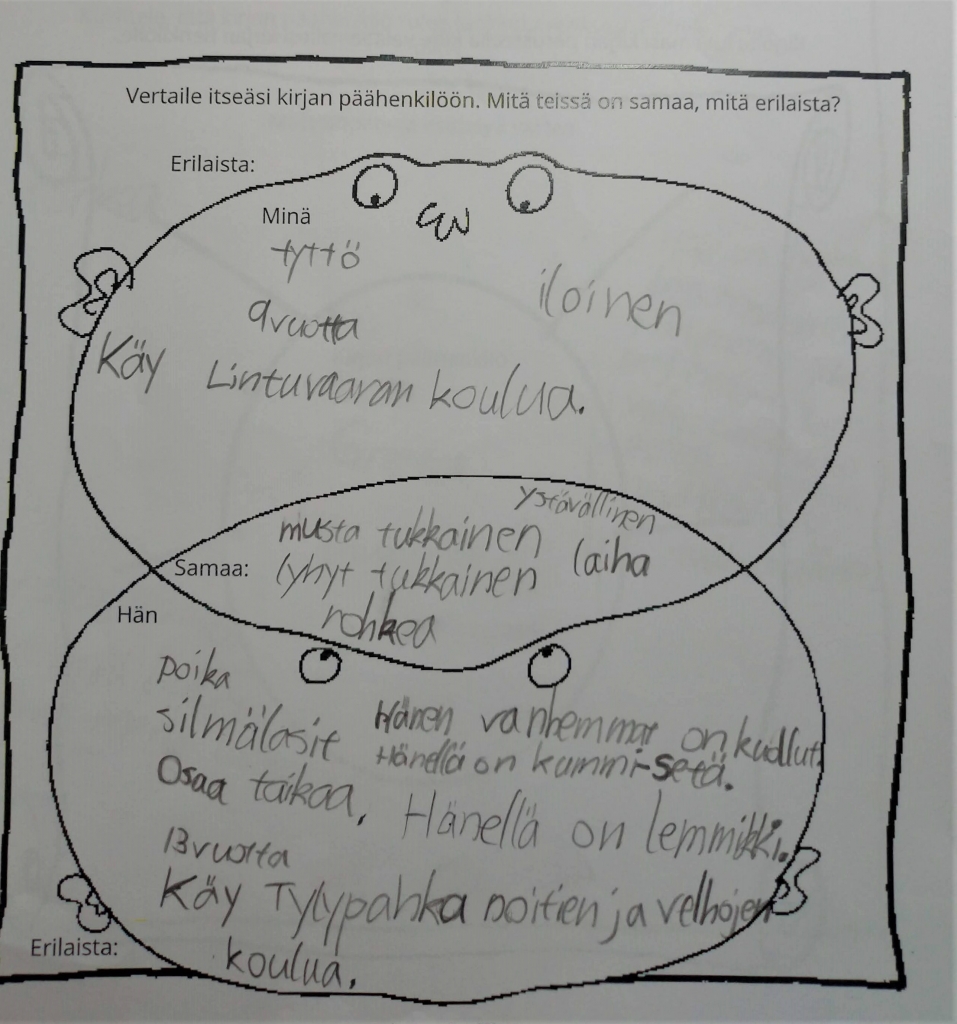 Vertaile itseäsi kirjan päähenkilöön. Mitä teissä on samaa, mitä erilaista?
Erilaista:
Minä
tyttö
iloinen
9 vuotta
Käy Lintuvaaran koulua.
ystävällinen
musta tukkainen
laiha
Samaa:
lyhyt tukkainen
rohkea
Hän
poika
silmälasit
Hänen vanhemmat on kuollut.
Hänellä on kummi-setä.
Osaa taikaa.
Hänellä on lemmikki.
13 vuotta
Käy Tylypahka noitien ja velhojen
koulua.
Erilaista: